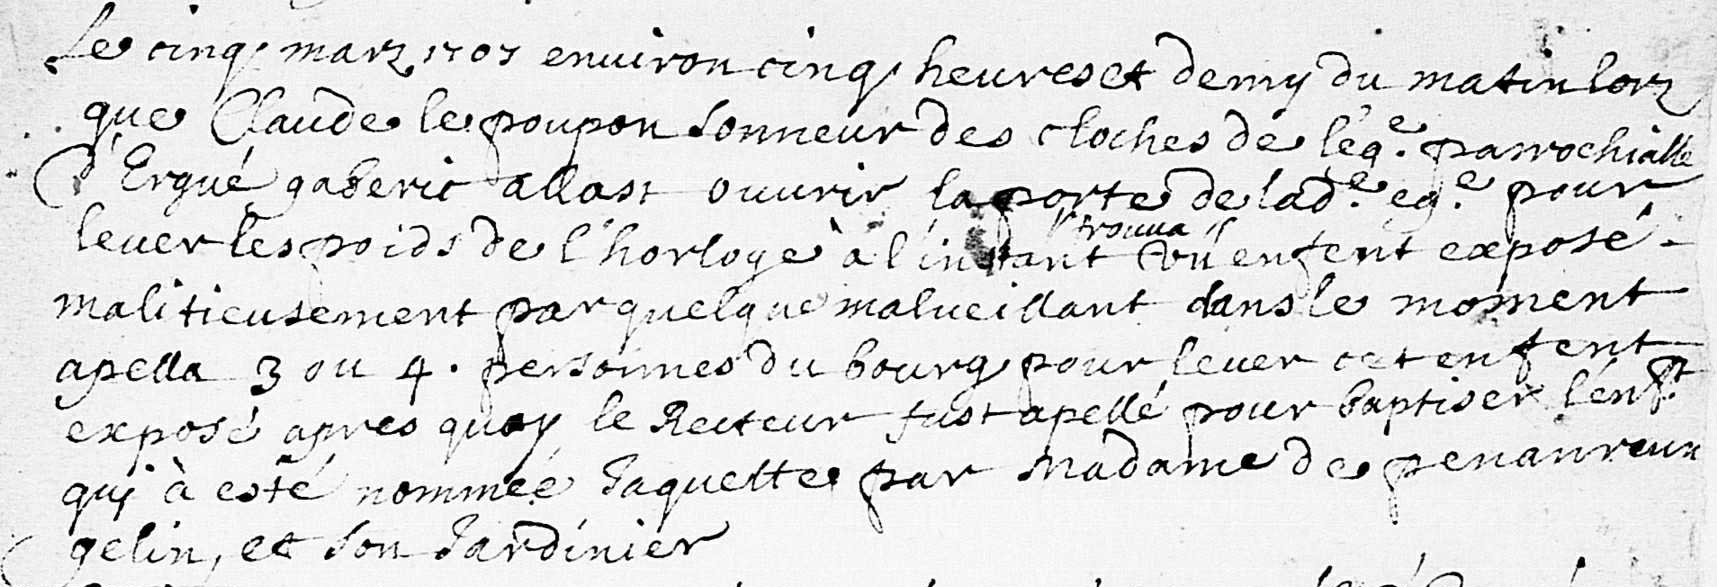 Le cinq marz 1707 environ cinq heures et demy du matin lorz
que Claude le poupon sonneur des cloches de l'eg.e parrochialle
d'Ergué gaberic allast ouvrir la porte de lad.e eg.e pour
lever les poids de l'horloge à l'instant trouva un enfent exposé
malitieusement par quelque malveillant dans le moment
apella 3 ou 4. personnes du bourg pour lever cet enfent
exposé apres quoy le Recteur fust apellé pour baptiser l'enf.t
qui à esté nommée Jaquette par Madame de penanreun
gelin, et son Jardinier